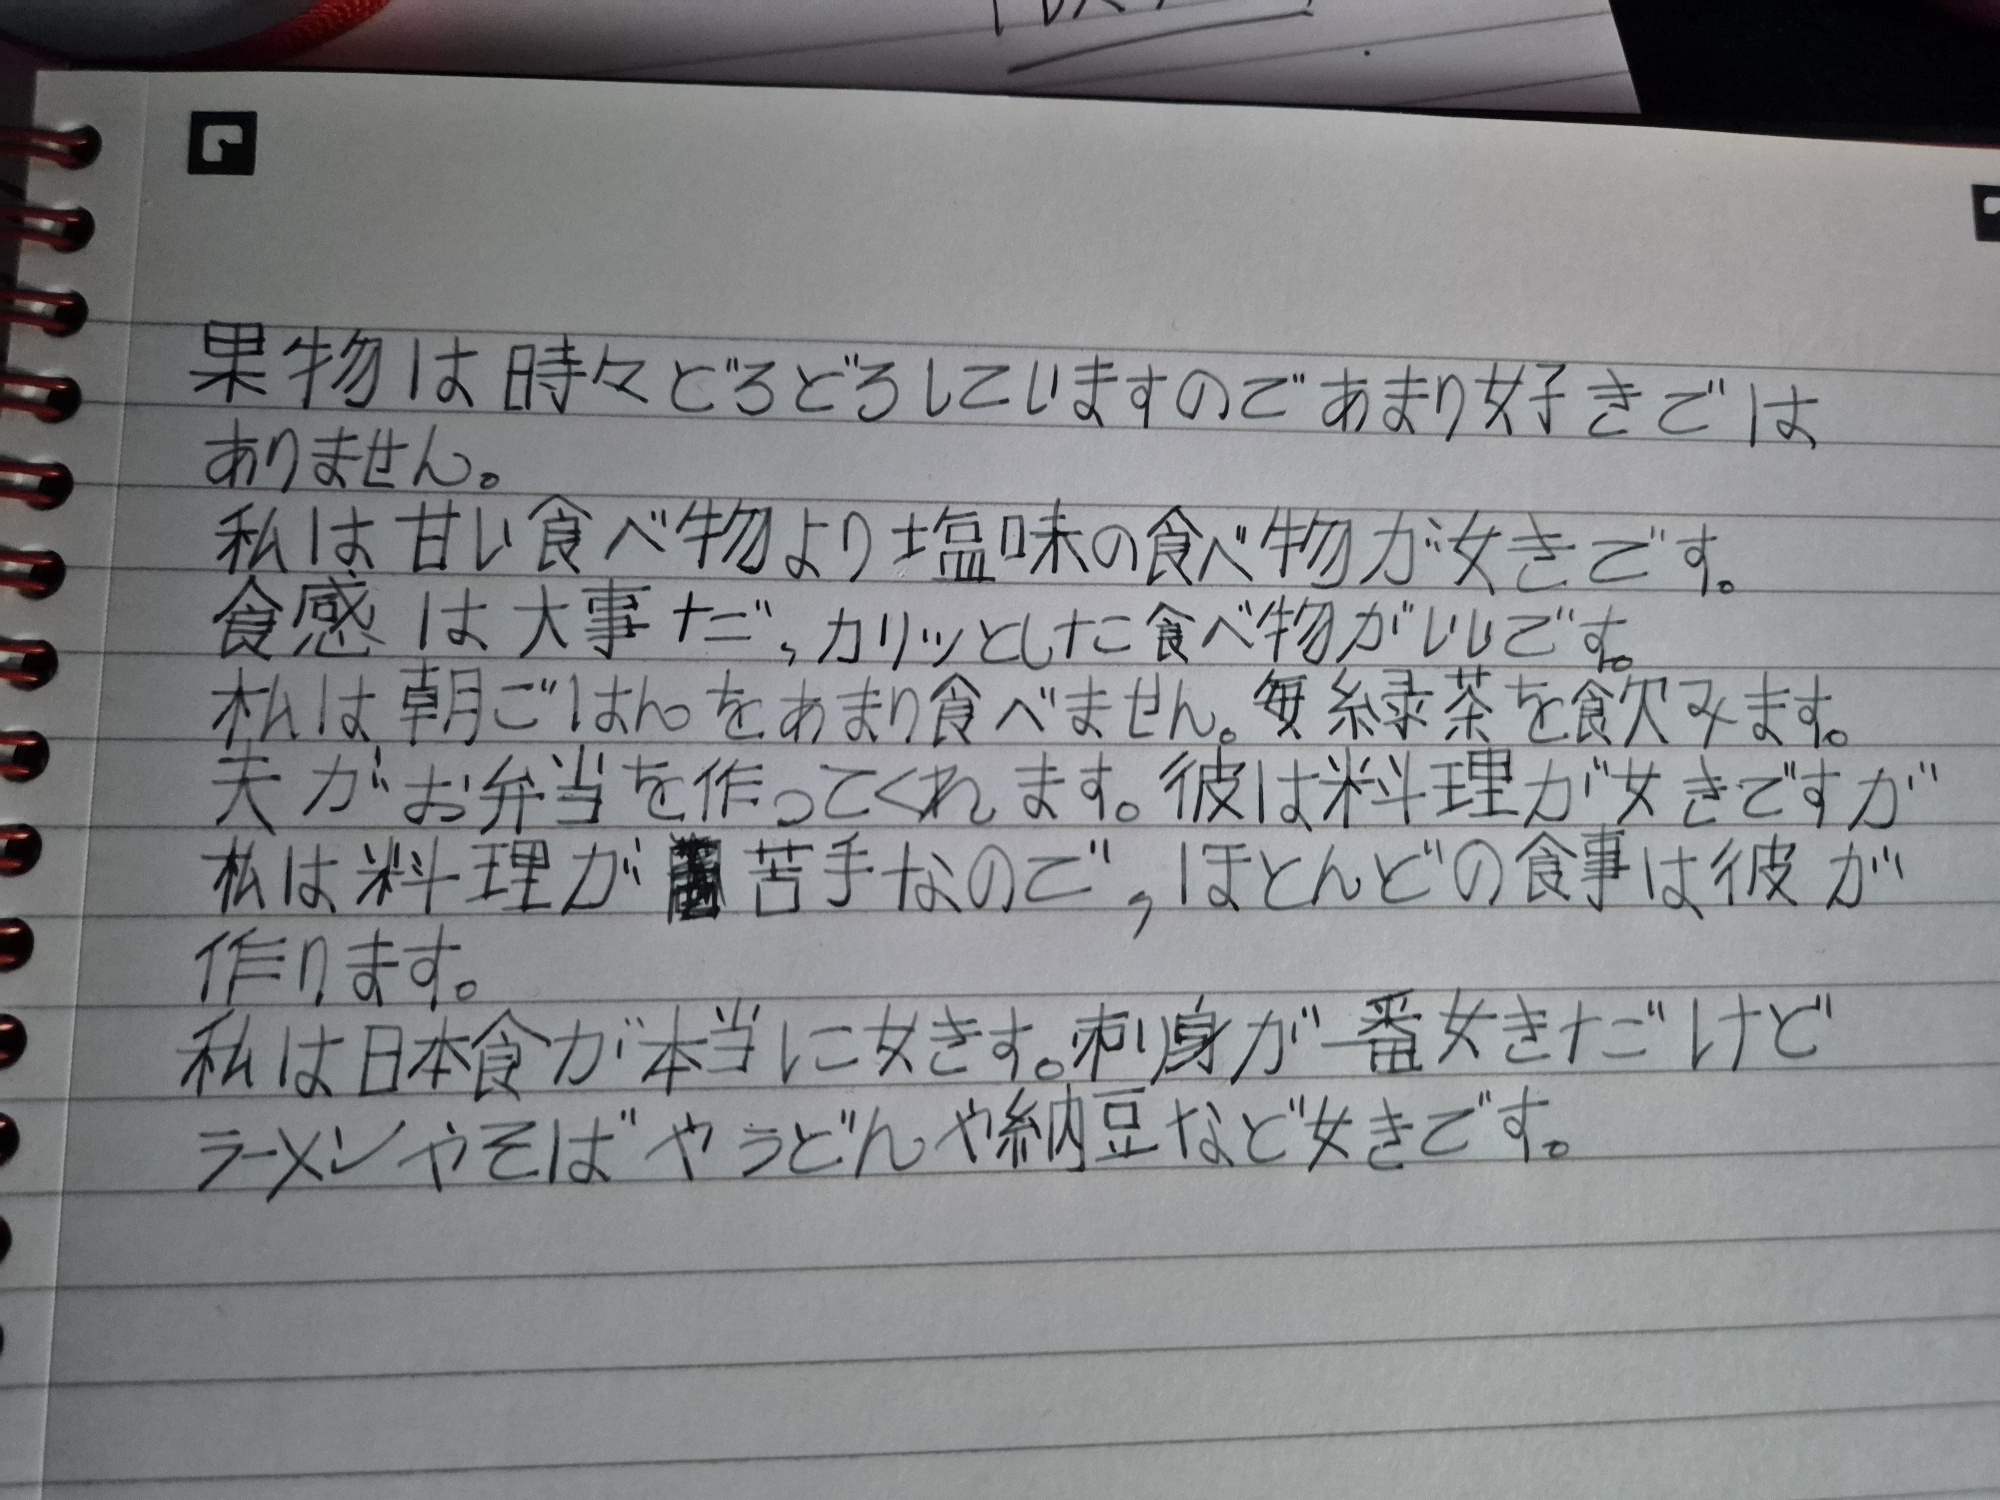 果物は時々どろどろしていますのであまり好きでは
ありません。
私は甘い食べ物より塩味の食べ物が女きです。
食感は大事だ、カリッとした食べ物がいいです。
私は朝ごはんをあまり食べません。毎緑茶を飲みます。
夫がお弁当を作ってくれます。彼は料理が女きですが
私は料理が苦手なので、ほとんどの食事は彼が
作ります。
私は日本食が本当に女きす。刺身が一番女きだけど
ラーメンやそばやうどんや納豆など女きです。